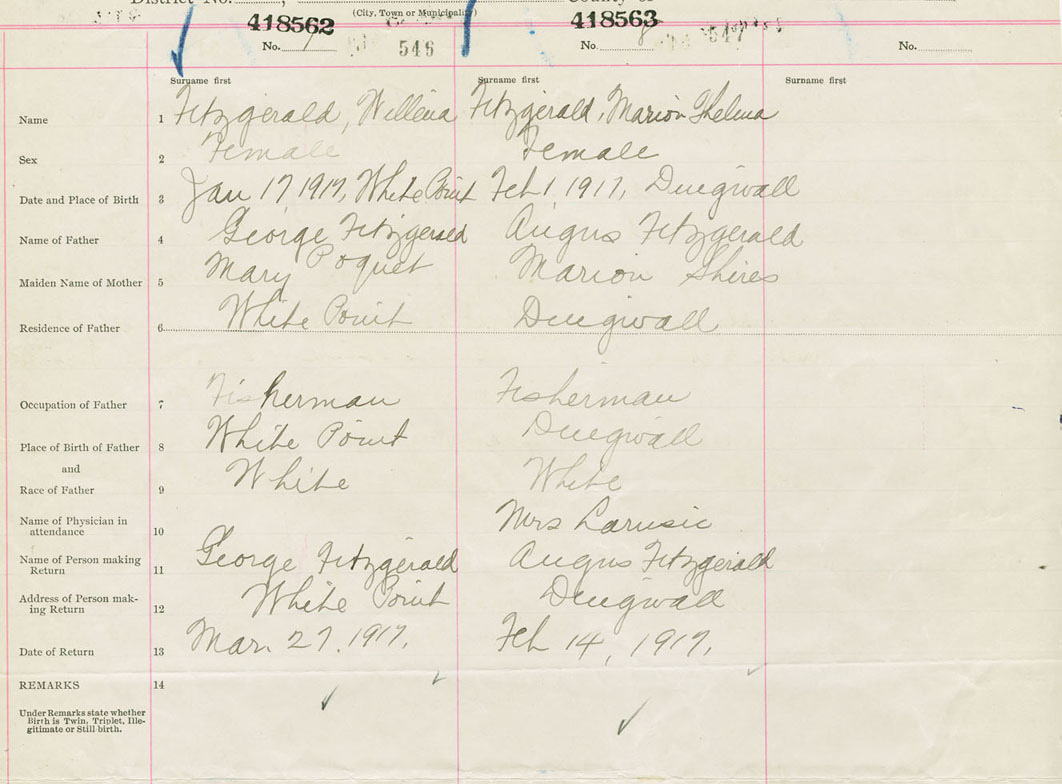 District No.
County of
(City, Town or Municipality)
418562
418563
No. 7
546
No. 8
547
No.
Surname first
Surname first
Surname first
Name 1 Fitzgerald, Willena Fitzgerald, Marion Thelma
Sex 2 Female Female
Date and Place of Birth 3 Jan 17 1917, White Point Feb 1, 1917, Dingwall
Name of Father 4 George Fitzgerald Angus Fitzgerald
Maiden Name of Mother 5 Mary Poquet Marion Shires
Residence of Father 6 White Point Dingwall
Occupation of Father 7 Fisherman Fisherman
Place of Birth of Father 8 White Point Dingwall
and
Race of Father 9 White White
Name of Physician in
attendance 10 Mrs Larusic
Name of Person making
Return 11 George Fitzgerald Angus Fitzgerald
Address of Person mak-
ing Return 12 White Point Dingwall
Date of Return 13 Mar. 27. 1917. Feb 14, 1917.
REMARKS 14
Under Remarks state whether
Birth is Twin, Triplet, Ille-
gitimate or Still birth.